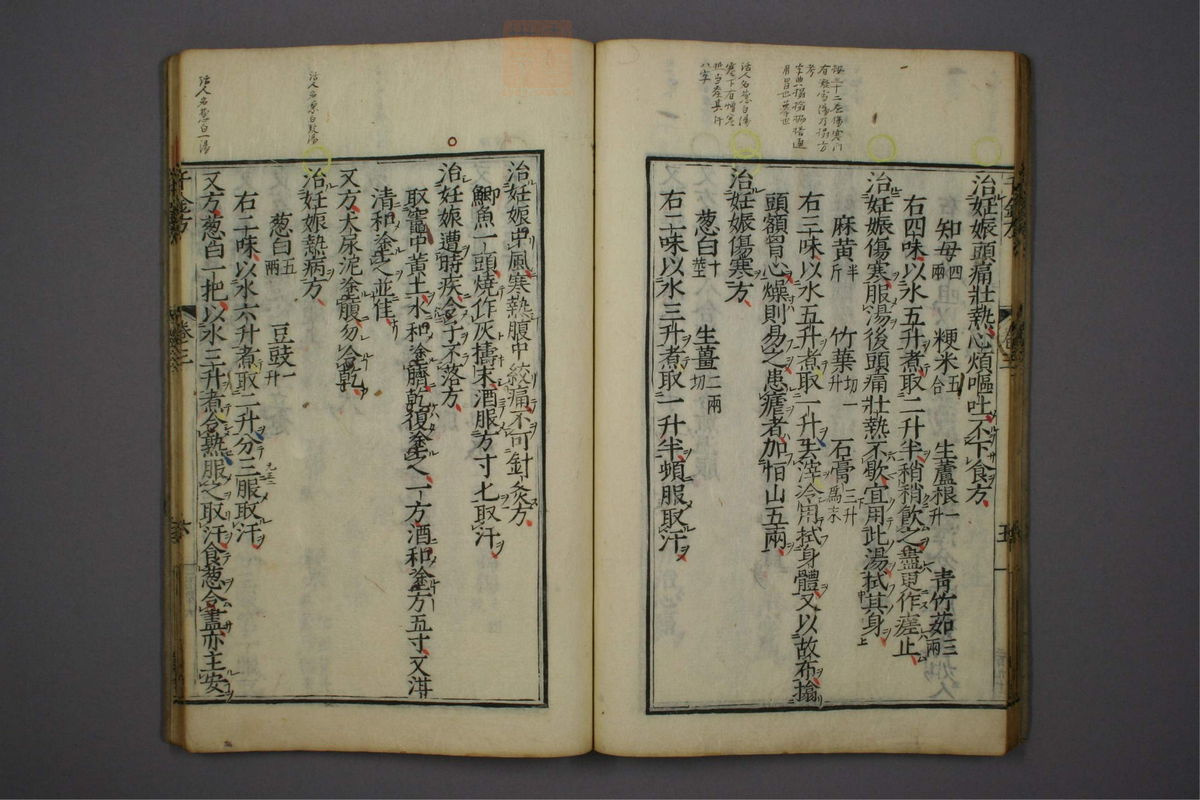 治妊娠頭痛壯熱心煩嘔吐不下食方
知母四兩 粳米五合 生蘆根一升 青竹茹三兩
右四味以水五升煮取二升半稍稍飲之盡更作瘥止
治妊娠傷寒服湯後頭痛壯熱不歇宜用此湯拭其身
麻黃半斤 竹葉切一升 石膏三升爲末
右三味以水五升煮取一升去滓冷用拭身體又以故布搨
頭額胷心燥則易之患瘧者加恒山五兩
治妊娠傷寒方
葱白十莖 生薑二兩切
右二味以水三升煮取一升半頓服取汗
治妊娠中風寒熱腹中絞痛不可針灸方
鯽魚一頭燒作灰擣末酒服方寸匕取汗
治妊娠遭時疾令子不落方
取竈中黃土水和塗臍乾復塗之一方酒和塗方五寸又泔
清和塗之並佳
又方犬尿泥塗腹勿令乾
治妊娠熱病方
葱白五兩 豆豉一升
右二味以水六升煮取二升分三服取汗
又方葱白一把以水三升煮令熟服之取汗食葱令盡亦主安
千金方 卷三 六